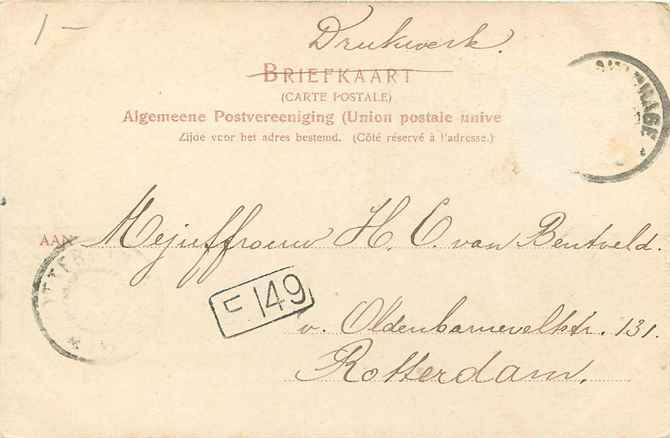 1-
Drukwerk.
BRIEFKAART
(CARTE POSTALE)
Algemeene Postvereeniging (Union postale unive
Zijde voor het adres bestemd. (Côté réservé à l'adresse.)
AAN Mejuffrouw H. C. van Bentveld.
149
v. Oldenbarneveltstr. 131.
Rotterdam.